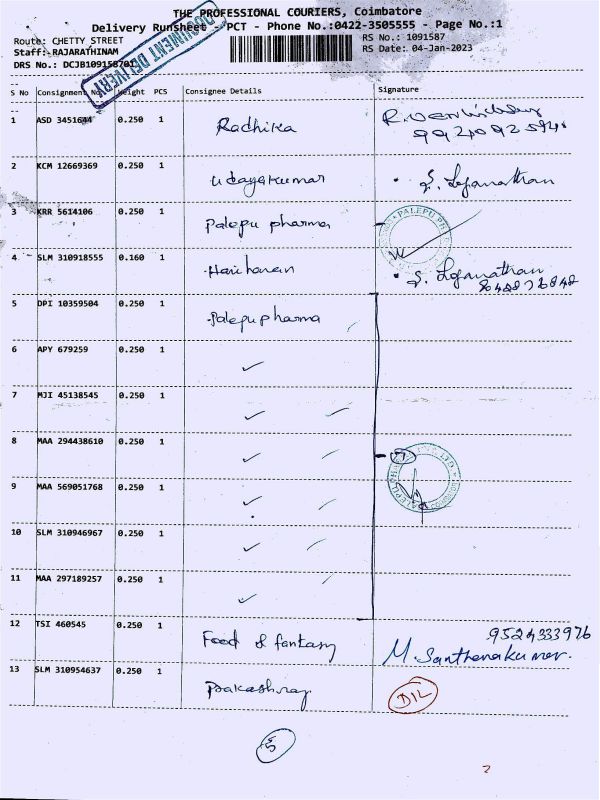 THE PROFESSIONAL COURIERS, Coimbatore
Delivery Runsheet - PCT - Phone No.:0422-3505555 - Page No.:1
Route: CHETTY STREET RS No.: 1091587
Staff:-RAJARATHINAM RS Date: 04-Jan-2023
DRS No.: DCJB109158701
DOCUMENT DELIVERY
S No Consignment No. Weight PCS Consignee Details Signature
1 ASD 3451644 0.250 1 Radhika
2 KCM 12669369 0.250 1 Udayakumar S. Loganathan
3 KRR 5614106 0.250 1 Palepu pharma
PALEPU
4 SLM 310918555 0.160 1 Hariharan S. Loganathan
5 DPI 10359504 0.250 1 Palepu pharma
6 APY 679259 0.250 1
7 MJI 45138545 0.250 1
8 MAA 294438610 0.250 1
9 MAA 569051768 0.250 1
10 SLM 310946967 0.250 1
11 MAA 297189257 0.250 1
12 TSI 460545 0.250 1 Food & fantasy 9524333976
M. Santhanakumar.
13 SLM 310954637 0.250 1 Prakashraj D/L
5
2